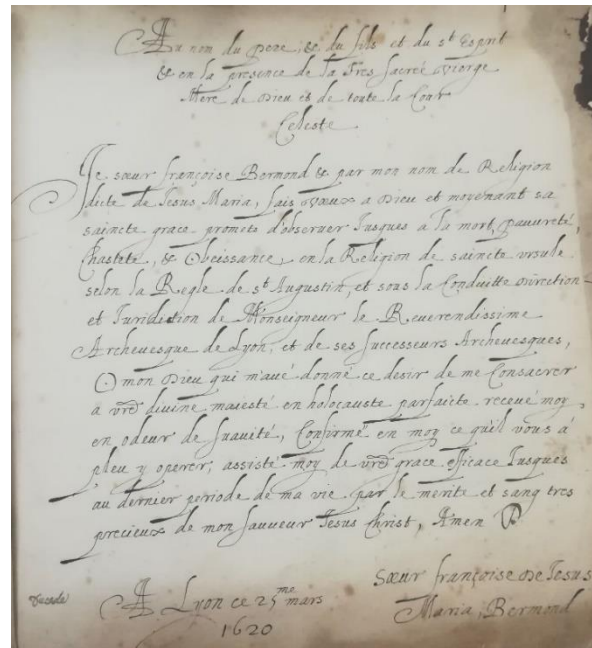 Au nom du Pere, & du fils et du st Esprit
& en la presence de la Tres sacreé vierge
Mere de Dieu et de toute la Cour
Celeste
Je sœur françoise Bermond & par mon nom de Religion
dicte de Jesus Maria, fais vœux a Dieu et moyenant sa
saincte grace promets d'observer Jusques a la mort, pauvreté,
Chasteté, & Obeissance, en la Religion de saincte ursule
selon la Regle de st Augustin, et sous la Conduitte Direction
et Juridistion de Monseigneur le Reverendissime
Archevesque de Lyon, et de ses successeurs Archevesques,
O mon Dieu qui m'avé donné ce desir de me Consacrer
a vrē divine maiesté en holocauste parfaicte recevé moy
en odeur de suavité, Confirmé en moy ce qu'il vous á
pleu y operer, assisté moy de vrē grace efficace Jusques
au dernier periode de ma vie par le merite et sang tres
precieux de mon sauveur Jesus Christ, Amen
Sœur françoise De Jesus
Maria, Bermond
A Lyon ce 25me mars
1620